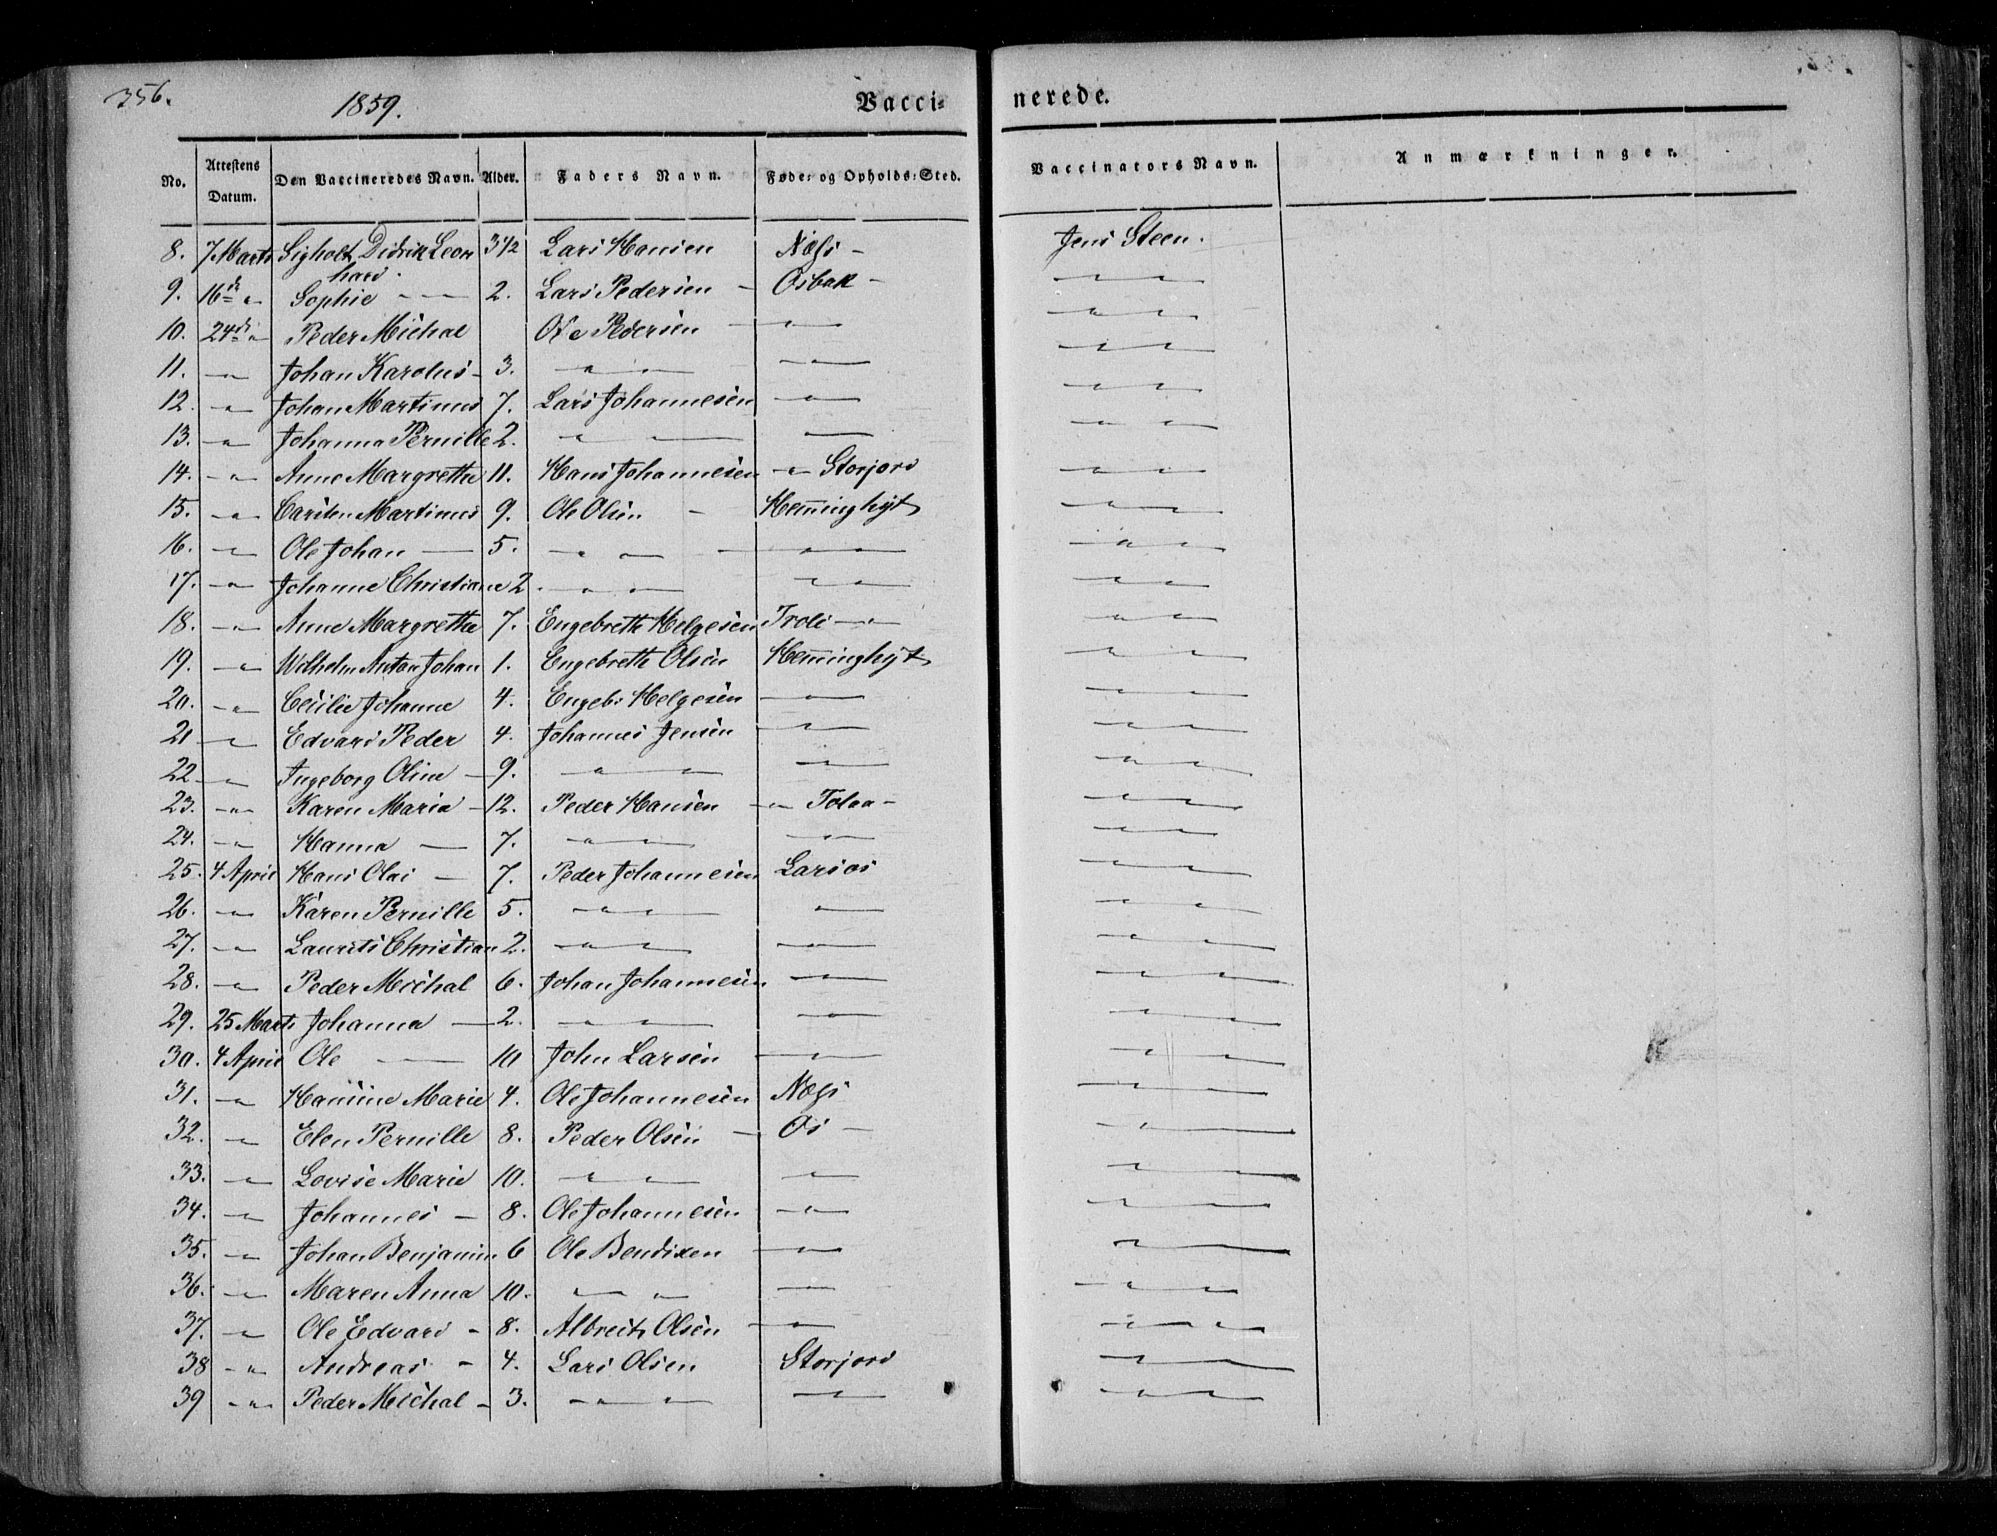 356.
1859.
Vacci- nerede.
No. Attestens Datum. Den Vaccineredes Navn. Alder. Faders Navn. Føde- og Opholds-Sted. Vaccinators Navn. Anmærkninger.
8. 7 Marts Sigholt Didrik Leon 3 1/2 Lars Hansen Næss - Jens Steen.
hard.
9. 16de " Sophie — 2. Lars Pedersen - Osbak - " "
10. 24de " Peder Michal Ole Pedersen - " " "
11. " Johan Karolus - 3. " " " " "
12. " Johan Martinus 7. Lars Johannesen " " "
13. " Johanna Pernille 2. " " " " "
14. " Anne Margrethe 11. Hans Johannesen " Storjord " "
15. " Carsten Martinus 9. Ole Olsen - Hemminghyt " "
16. " Ole Johan — 5. " " " " " "
17. " Johanne Christiane 2. " " " " " "
18. " Anne Margrethe 7. Engebreth Helgesen Trold " " "
19. " Wilhelm Anton Johan 1. Engebreth Olsen Hemminghyt " "
20. " Cecilie Johanne 4. Engebr Helgesen " " "
21 " Edvard Peder 4. Johannes Jensen " " "
22 " Ingeborg Oline - 9. " " " " "
23. " Karen Maria - 12. Peder Hansen " Tolaa - " "
24. " Hanna — 7. " " " " "
25. 4 April Hans Olai — 7. Peder Johannesen Larsos " "
26. " Karen Pernille 5. " " " " "
27. " Laurits Christian 2. " " " " "
28. " Peder Michal 6. Johan Johannesen " " "
29. 25 Marts Johanna — 2. " " " " "
30. 4 April Ole — 10 John Larsen " " "
31. " Hansine Marie 4. Ole Johannesen Næss " "
32. " Elen Pernille 8. Peder Olsen - Os - " "
33. " Lovise Marie 10. " " " " "
34. " Johannes - 8. Ole Johannesen " " "
35. " Johan Benjamin 6 Ole Bendixen " " "
36. " Maren Anna 10. " " " " "
37. " Ole Edvard - 8. Albreit Olsen " " "
38 " Andreas - 4. Lars Olsen Storjord " "
39 " Peder Michal - 3. " " " " "